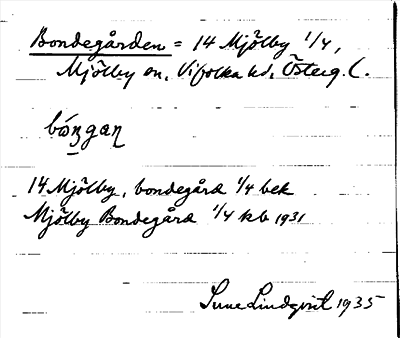 Bondegården = 14 Mjölby 1/4,
Mjölby sn, Vifolka hd, Österg. l.
14 Mjölby, bondegård 1/4 bek
Mjölby Bondegård 1/4 kb 1931
Sune Lindqvist 1935